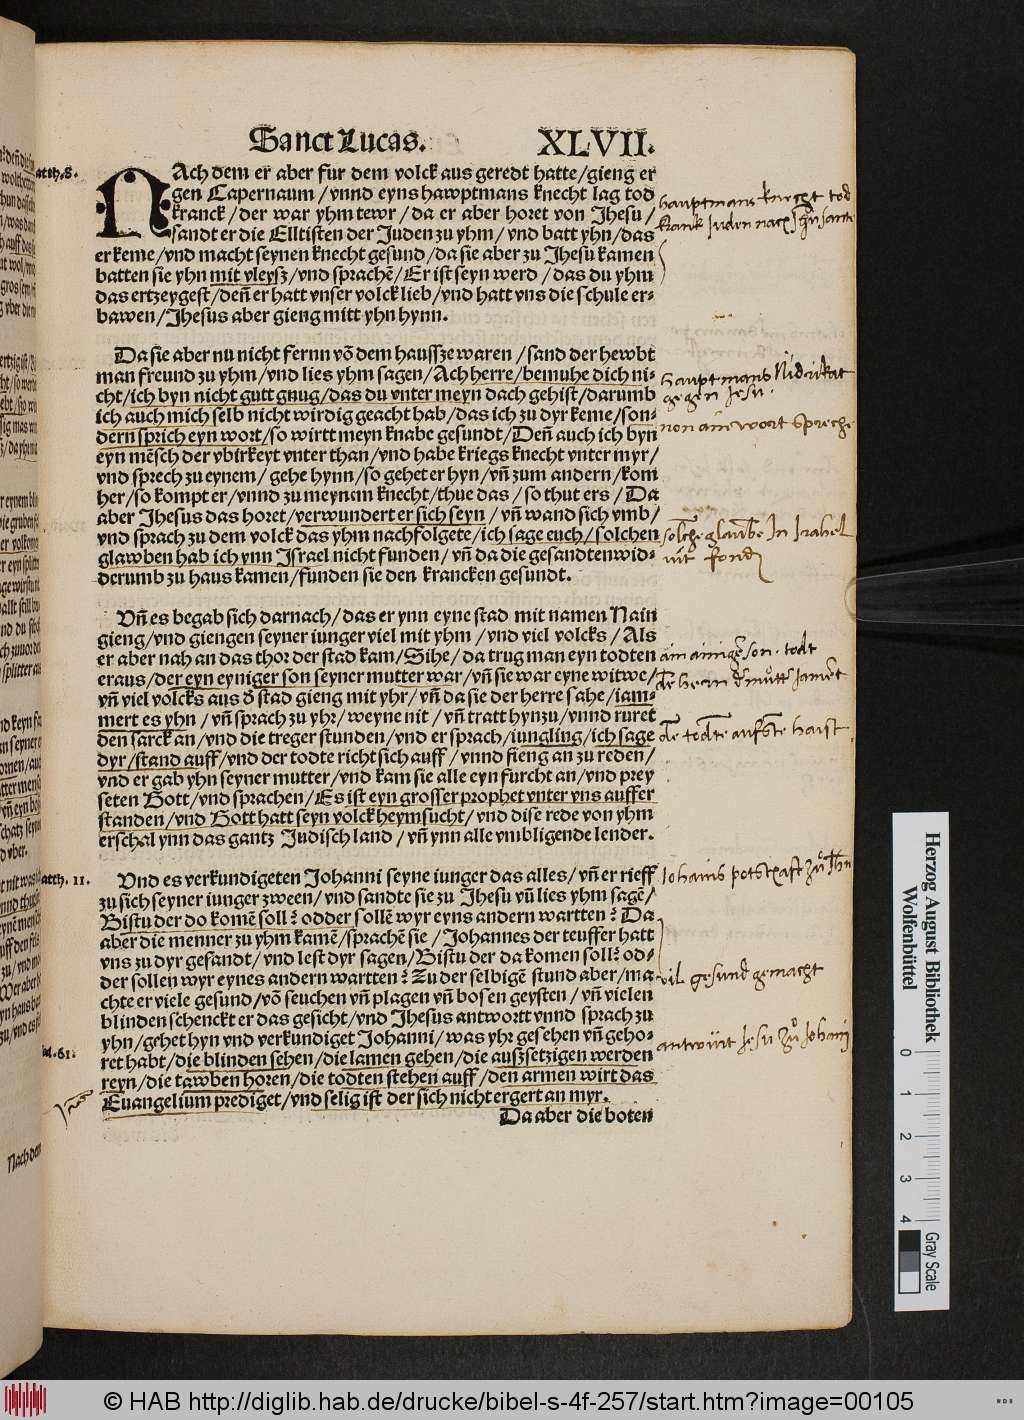 Sanct Lucas. XLVII.
Matth. 8.
NAch dem er aber fur dem volck aus geredt hatte/gieng er
gen Capernaum/vnnd eyns hawptmans knecht lag tod
kranck/der war yhm tewr/da er aber horet von Jhesu/
sandt er die Elltisten der Juden zu yhm/vnd batt yhn/das
er keme/vnd macht seynen knecht gesund/da sie aber zu Jhesu kamen
batten sie yhn mit vleysz/vnd sprachẽ/Er ist seyn werd/das du yhm
das ertzeygest/deñ er hatt vnser volck lieb/vnd hatt vns die schule er-
bawen/Jhesus aber gieng mitt yhn hynn.
hauptmans knecht tod
krank Juden nach
Da sie aber nu nicht fernn võ dem haussze waren/sand der hewbt
man freund zu yhm/vnd lies yhm sagen/Ach herre/bemuhe dich ni-
cht/ich byn nicht gutt gnug/das du vnter meyn dach gehist/darumb
ich auch mich selb nicht wirdig geacht hab/das ich zu dyr keme/son-
dern sprich eyn wort/so wirtt meyn knabe gesundt/Deñ auch ich byn
eyn mẽsch der vbirkeyt vnter than/vnd habe kriegs knecht vnter myr/
vnd sprech zu eynem/gehe hynn/so gehet er hyn/vñ zum andern/kom
her/so kompt er/vnnd zu meynem knecht/thue das/so thut ers/Da
aber Jhesus das horet/verwundert er sich seyn/vñ wand sich vmb/
vnd sprach zu dem volck das yhm nachfolgete/ich sage euch/solchen
glawben hab ich ynn Israel nicht funden/vñ da die gesandten wid-
derumb zu haus kamen/funden sie den krancken gesundt.
hauptmans Nidrikat
gegen Jesu.
non ain wort spreche
solche glaube In Israhel
nit fonde
Vñ es begab sich darnach/das er ynn eyne stad mit namen Nain
gieng/vnd giengen seyner iunger viel mit yhm/vnd viel volcks/Als
er aber nah an das thor der stad kam/Sihe/da trug man eyn todten
eraus/der eyn eyniger son seyner mutter war/vñ sie war eyne witwe/
vñ viel volcks aus d̕ stad gieng mit yhr/vñ da sie der herre sahe/iam-
mert es yhn/vñ sprach zu yhr/weyne nit/vñ tratt hynzu/vnnd ruret
den sarck an/vnd die treger stunden/vnd er sprach/iungling/ich sage
dyr/stand auff/vnd der todte richt sich auff/vnnd fieng an zu reden/
vnd er gab yhn seyner mutter/vnd kam sie alle eyn furcht an/vnd prey
seten Gott/vnd sprachen/Es ist eyn grosser prophet vnter vns auffer
standen/vnd Gott hatt seyn volck heymsucht/vnd dise rede von yhm
erschal ynn das gantz Judisch land/vñ ynn alle vmbligende lender.
ain ainiger son. todt
Matth. 11.
Vnd es verkundigeten Johanni seyne iunger das alles/vñ er rieff
zu sich seyner iunger zween/vnd sandte sie zu Jhesu vñ lies yhm sagẽ/
Bistu der do komẽ soll? odder sollẽ wyr eyns andern wartten? Da
aber die menner zu yhm kamẽ/sprachẽ sie/Johannes der teuffer hatt
vns zu dyr gesandt/vnd lest dyr sagen/Bistu der da komen soll? od-
der sollen wyr eynes andern wartten? Zu der selbigẽ stund aber/ma
chte er viele gesund/võ seuchen vñ plagen vñ bosen geysten/vñ vielen
blinden schenckt er das gesicht/vnd Jhesus antwortt vnnd sprach zu
yhn/gehet hyn vnd verkundiget Johanni/was yhr gesehen vñ geho-
ret habt/die blinden sehen/die lamen gehen/die auszsetzigen werden
reyn/die tawben horen/die todten stehen auff/den armen wirt das
Euangelium prediget/vnd selig ist der sich nicht ergert an myr.
Da aber die boten
Johanis potschaft zů Jhu
vil gesund gemacht
antwürt Jesu zů Johani
Herzog August Bibliothek
Wolfenbüttel
0 1 2 3 4
Gray Scale
© HAB http://diglib.hab.de/drucke/bibel-s-4f-257/start.htm?image=00105